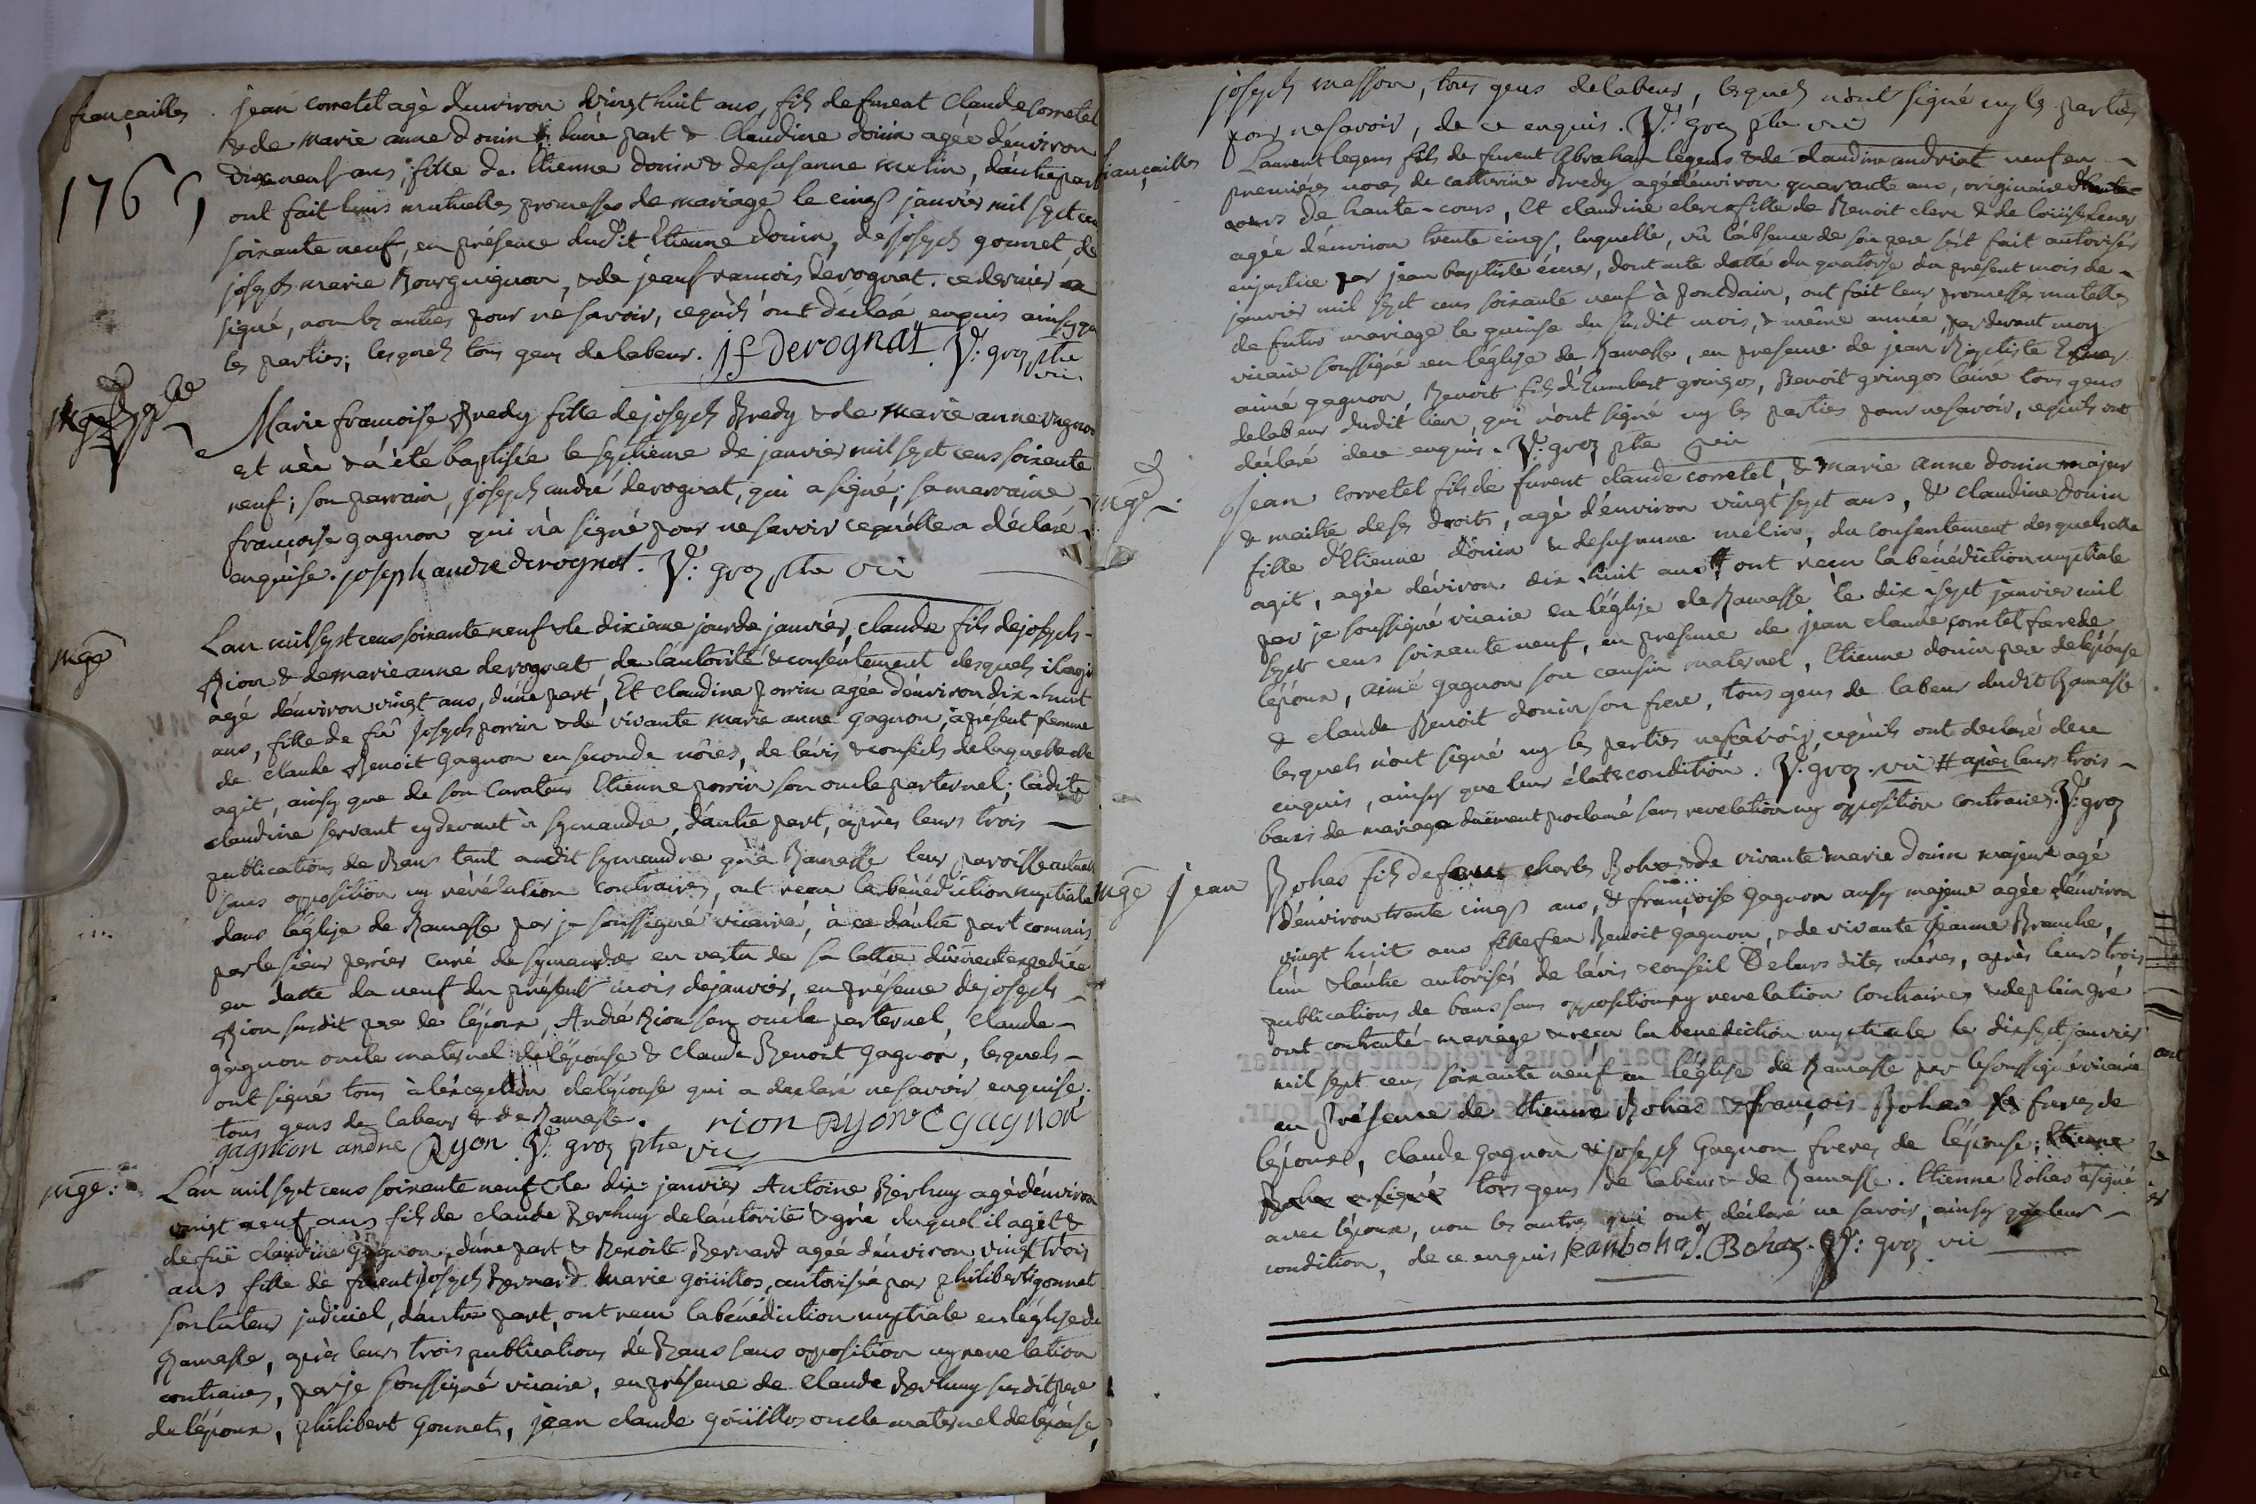 fiançailles
1769
jean corretel agé d'environ vingt huit ans, fils de furent Claude Corretel
& de marie anne donin d'une part & Claudine donin agée d'environ
dix neuf ans, fille de Etienne donin & de susanne melin, d'autre part
ont fait leurs mutuelles promesses de mariage le cinq janvier mil sept cens
soixante neuf, en présence dudit Etienne donin, de joseph gonnet, de
joseph marie Bourguignon, & de jean francois derognat. ce dernier a
signé, non les autres pour ne savoir, ce qu'ils ont déclaré enquis ainsy que
les parties; lesquels tous gens de labeur. jf Derognat. V: groz ptre
vic
Marie francoise Bredy fille de joseph Bredy & de marie anne
est née & a été baptisée le septieme de janvier mil sept cens soixante
neuf; son parrain, joseph andré derognat, qui a signé; sa marraine
francoise gagnon qui n'a signé pour ne savoir ce qu'elle a déclaré
enquise. joseph andre derognat. V: groz ptre vic
mge
Lan mil sept cens soixante neuf & le dixieme jour de janvier, claude fils de joseph
Rion & de marie anne derognat, de l'autorité & consentement desquels il agit
agé d'environ vingt ans, d'une part, Et claudine porrin agée d'environ dix-huit
ans, fille de fû joseph porrin & de vivante marie anne gagnon, à présent femme
de claude Benoit Gagnon en seconde nôces, de l'avis & conseils de laquelle elle
agit, ainsy que de son Curateur Etienne porrin son oncle parternel; ladite
claudine servant cy devant à symandre, d'autre part, après leurs trois
publications de Bans tant audit symandre qu'à Ramasse leur paroisse actuelle
sans opposition ny révélation contraires, ont reçu la bénédiction nuptiale
dans l'église de Ramasse par je soussigné vicaire, à ce d'autre part commis
par le sieur perier curé de symandre en vertu de sa lettre dûment expediée
en datte du neuf du présent mois de janvier, en présence de joseph
Rion susdit pere de l'époux, André Rion son oncle parternel, Claude
gagnon oncle maternel de l'épouse & claude Benoit Gagnon, lesquels
ont signé tous à l'exception de l'épouse qui a declaré ne savoir enquise,
tous gens de labeur & de Ramasse. rion Ryon C gagnon
gagnion andre Ryon V: groz ptre vic
mge:
Lan mil sept cens soixante neuf & le dix janvier Antoine Berhuy agé d'environ
vingt neuf ans fils de claude Berhuy de l'autorité & gré duquel il agit &
de fuë claudine Gagnon, d'une part & Benoite Bernard agée d'environ vingt trois
ans fille de furent joseph Bernard marie goiiillos, autorisée par philibert gonnet
son tuteur judiciel, d'autre part, ont reçu la bénédiction nuptiale en l'église de
Ramasse, après leurs trois publications de Bans sans opposition ny revelation
contraires, par je soussigné vicaire, en présence de Claude Berhuy susdit pere
de l'époux, philibert Gonnet, jean claude goiiillos oncle maternel de l'épouse,
joseph masson, tous gens de labeur, lesquels n'ont signé ny les parties
pour ne savoir, de ce enquis. V: groz ptre vic
fiançailles
Laurent legens fils de furent Abraham legens & de claudine andriat neuf en
premiéres noces de catherine Bredy agé d'environ quarante ans, originaire
de haute-cour, Et claudine clerc fille de Benoit clerc & de loiiise
agée d'environ trente cinq, laquelle, vû l'absence de son pere s'est fait autoriser
en justice par jean baptiste, dont acte datté du quatorse du présent mois de
janvier mil sept cens soixante neuf à pontdain, ont fait leurs promesses mutuelles
de futur mariage le quinse du susdit mois, & même année, par devant moy
vicaire soussigné en l'église de Ramasse, en présence de jean Baptiste
aimé gagnon, Benoit fils d'Eumbert gringos, Benoit gringos l'ainé tous gens
de labeur dudit lieu, qui n'ont signé ny les parties pour ne savoir, ce qu'ils ont
déclaré de ce enquis. V: groz ptre vic
mge
jean corretel fils de furent claude corretel, & marie anne donin majeur
& maitre de ses droits, agé d'environ vingt sept ans, & claudine donin
fille d'Etienne donin & de susanne melin, du consentement desquels elle
agit, agée d'environ dix huit ans # ont reçu la bénédiction nuptiale
par je soussigné vicaire en l'église de Ramasse le dix sept janvier mil
sept cens soixante neuf, en présence de jean claude corretel frere de
l'époux, aimé gagnon son cousin maternel, Etienne donin pere de l'épouse
& claude Benoit donin son frere, tous gens de labeur dudit Ramasse
lesquels n'ont signé ny les parties ne sçavoir, ce qu'ils ont declaré de ce
enquis, ainsy que leur état & condition. V. groz. vic # après leurs trois
bans de mariage duëment proclamé sans revelation ny opposition contraires. V: groz
mge
jean Bohas fils de charles Bohas & de vivante marie donin majeur agé
d'environ trente cinq ans, & françoise Gagnon aussy majeure agée d'environ
vingt huit ans fille feu Benoit Gagnon, & de vivante jeanne Branche,
l'un & l'autre autorisés de l'avis & conseil de leurs dites méres, après leurs trois
publications de bans sans opposition ny revelation contraires & de plein gré
ont contracté mariage & reçu la benediction nuptiale le dix sept janvier
mil sept cens soixante neuf en l'église de Ramasse par le soussigné vicaire
en présence de Etienne Bohas & françois Bohas freres de
l'époux, claude gagnon & joseph Gagnon freres de l'épouse; Etienne
Bohas a signé tous gens de labeur & de Ramasse. Etienne Bohas a signé
avec l'époux, non les autres qui ont déclaré ne savoir, ainsy que leur
condition, de ce enquis jean bohas. Bohas. V: groz vic